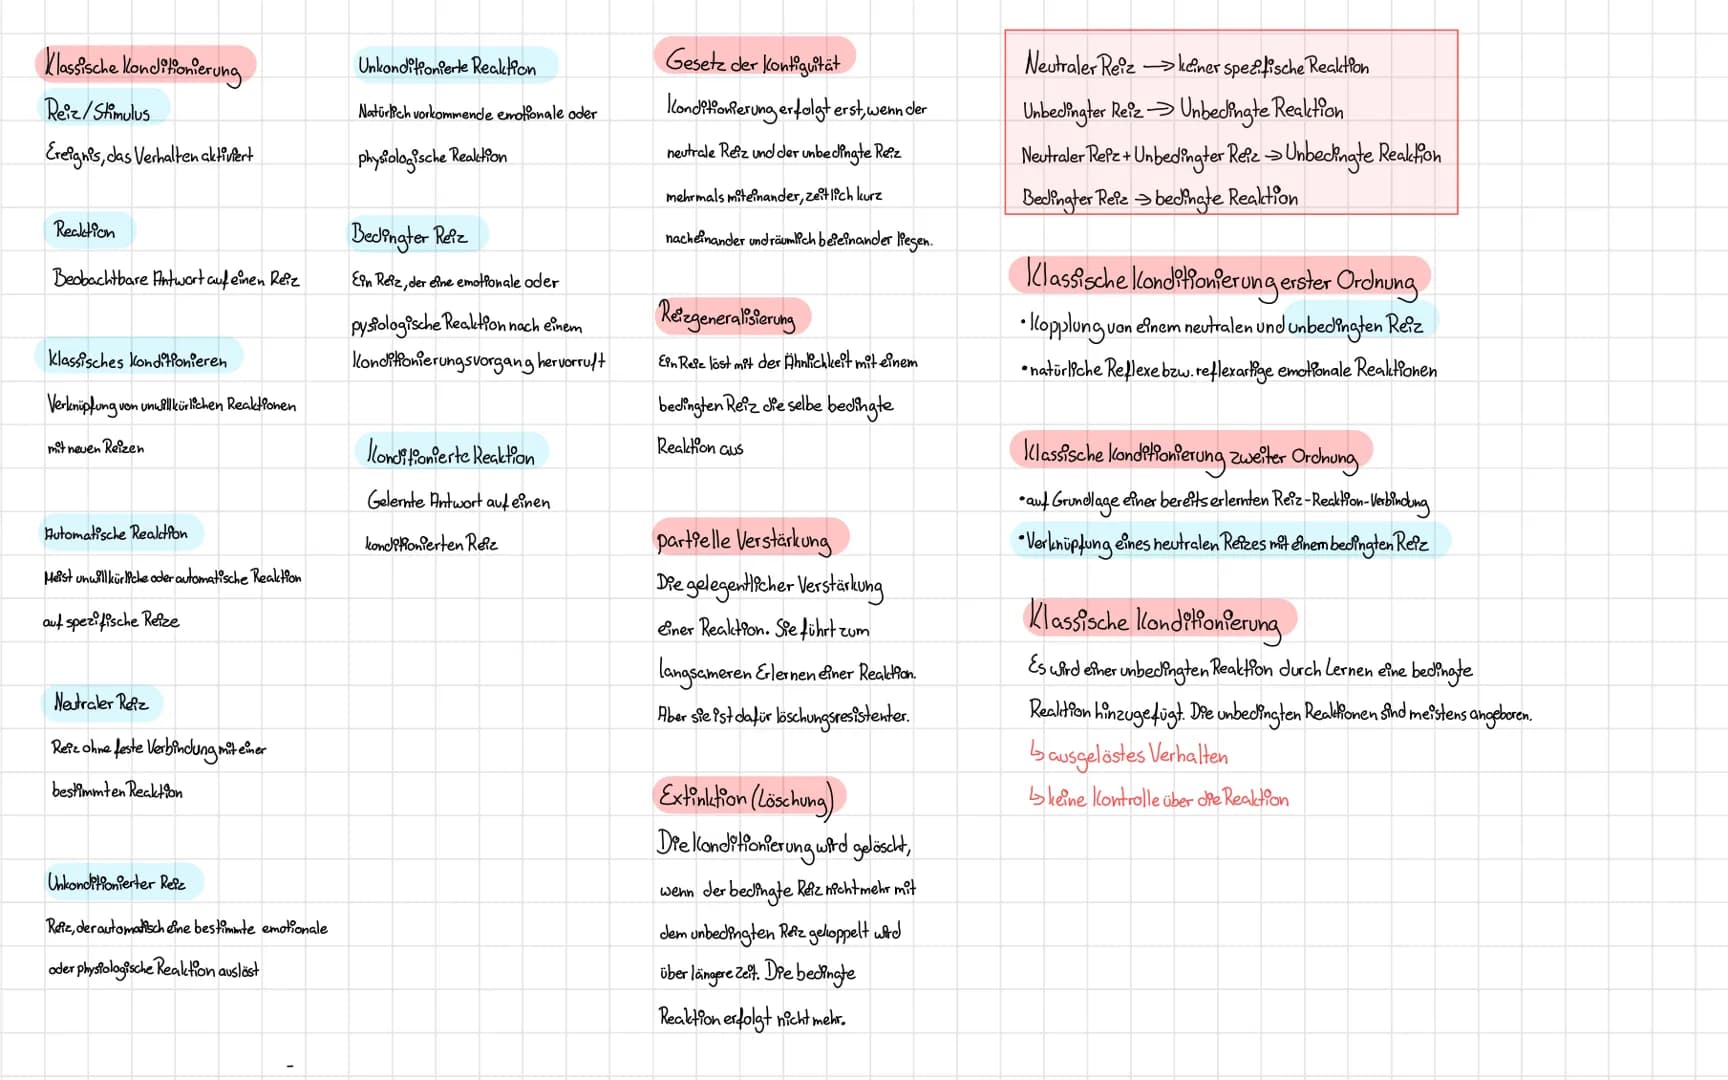 Klassische Konditionierung
Reiz/Stimulus
Ereignis, das Verhalten aktiviert
Reaktion
Beobachtbare Antwort auf einen Reiz
Klassisches Konditionieren
Verknüpfung von unwillkürlichen Reaktionen
mit neuen Reizen
Automatische Reaktion
Meist unwillkürliche oder automatische Reaktion
auf spezifische Reize
Neutraler Reiz
Reiz ohne feste Verbindung mit einer
bestimmten Reaktion
Unkonditionierter Reiz
Reiz, der automatisch eine bestimmte emotionale
oder physiologische Reaktion auslöst
Unkonditionierte Reaktion
Natürlich vorkommende emotionale oder
physiologische Reaktion
Bedingter Reiz
Ein Reiz, der eine emotionale oder
pysiologische Reaktion nach einem
Konditionierungsvorgang hervorruft
Konditionierte Reaktion
Gelernte Antwort auf einen
konditionierten Reiz
Gesetz der Kontiguität
Konditionierung erfolgt erst, wenn der
neutrale Reiz und der unbedingte Reiz
mehrmals miteinander, zeitlich kurz
nacheinander und räumlich beieinander liegen.
Reizgeneralisierung
Ein Reiz löst mit der Ähnlichkeit mit einem
bedingten Reiz die selbe bedingte
Reaktion aus
partielle Verstärkung
Die gelegentlicher Verstärkung
einer Reaktion. Sie führt zum
langsameren Erlernen einer Reaktion.
Aber sie ist dafür löschungsresistenter.
Extinktion (Löschung)
Die Konditionierung wird gelöscht,
wenn der bedingte Reiz nicht mehr mit
dem unbedingten Reiz gekoppelt wird
über längere Zeit. Die bedingte
Reaktion erfolgt nicht mehr.
Neutraler Reiz → keiner spezifische Reaktion
Unbedingter Reiz → Unbedingte Reaktion
Neutraler Reiz + Unbedingter Reiz → Unbedingte Reaktion
Bedingter Reiz → bedingte Reaktion
Klassische Konditionierung erster Ordnung
• Kopplung von einem neutralen und unbedingten Reiz
• natürliche Reflexe bzw. reflexartige emotionale Reaktionen
Klassische Konditionierung zweiter Ordnung
• auf Grundlage einer bereits erlernten Reiz-Reaktion-Verbindung
• Verknüpfung eines neutralen Reizes mit einem bedingten Reiz
Klassische Konditionierung
Es wird einer unbedingten Reaktion durch Lernen eine bedingte
Reaktion hinzugefügt. Die unbedingten Reaktionen sind meistens angeboren.
↳ ausgelöstes Verhalten
↳ keine Kontrolle über die Reaktion